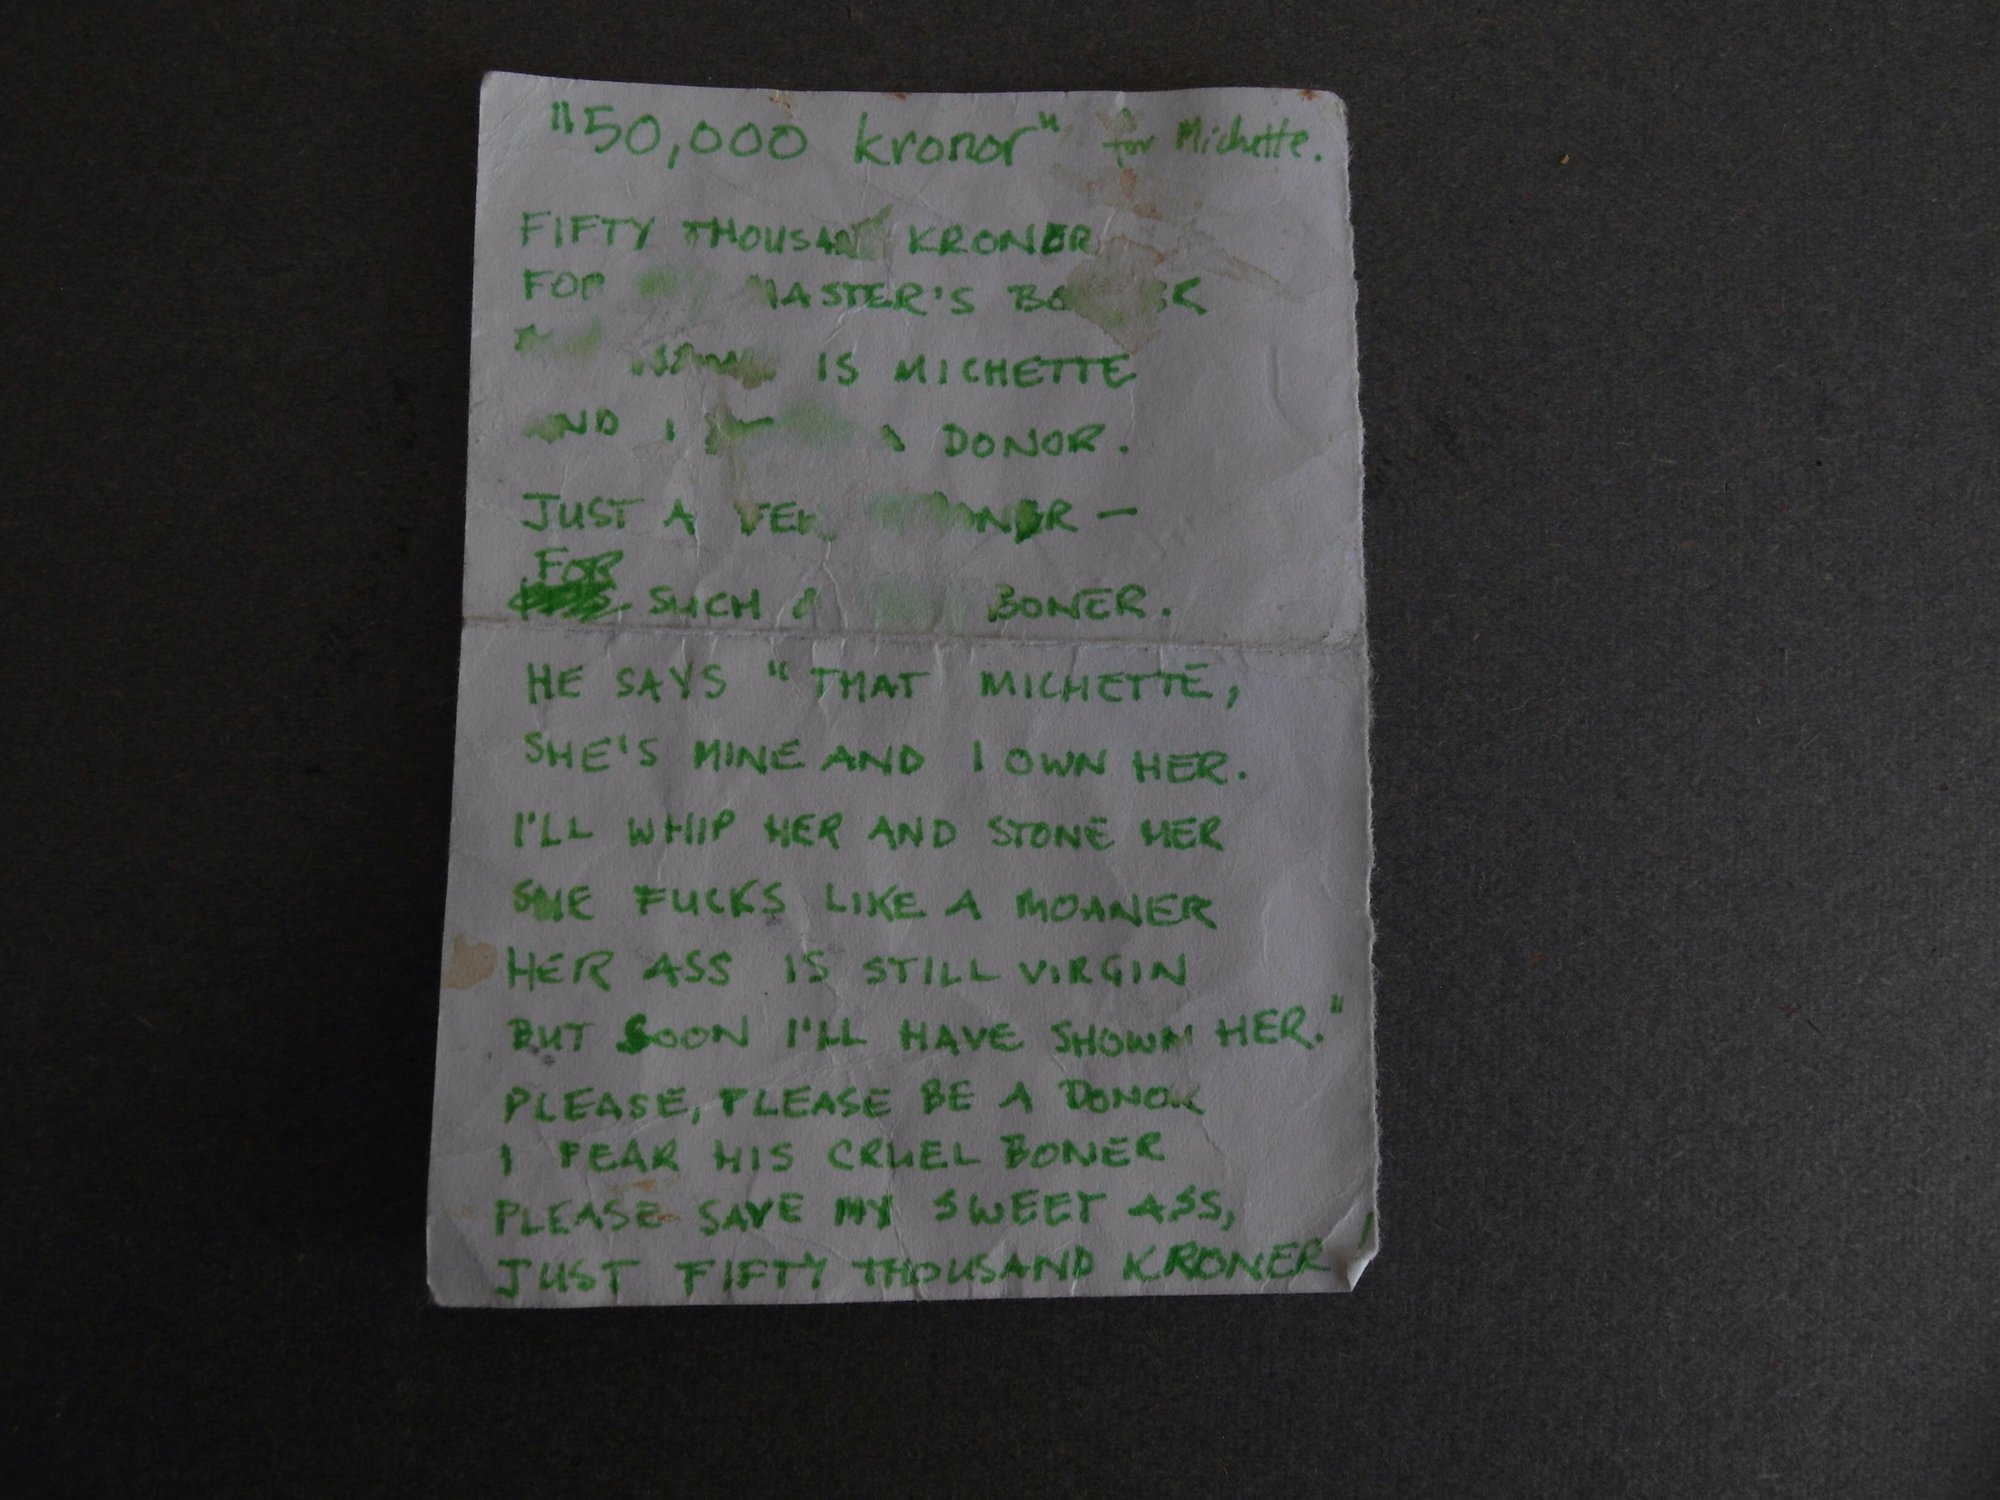 "50,000 kronor" for Michette.
FIFTY THOUSAND KRONER
FOR MASTER'S
IS MICHETTE
AND I A DONOR.
JUST A FEW KRONER —
FOR SUCH A BONER.
HE SAYS "THAT MICHETTE,
SHE'S MINE AND I OWN HER.
I'LL WHIP HER AND STONE HER
SHE FUCKS LIKE A MOANER
HER ASS IS STILL VIRGIN
BUT SOON I'LL HAVE SHOWN HER."
PLEASE, PLEASE BE A DONOR
I FEAR HIS CRUEL BONER
PLEASE SAVE MY SWEET ASS,
JUST FIFTY THOUSAND KRONER!